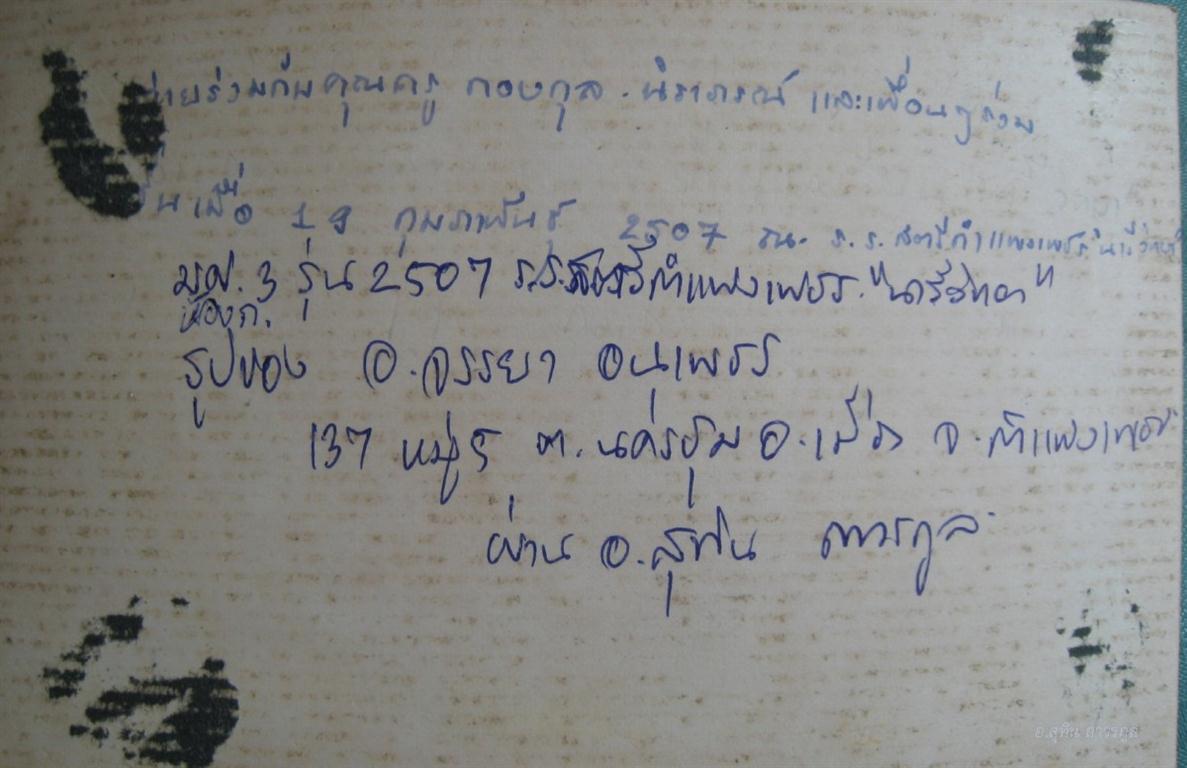 ถ่ายร่วมกับคุณครู กองกุล นิราภรณ์ และเพื่อนๆร่วม
เมื่อ 19 กุมภาพันธ์ 2507 ณ. ร.ร. สตรีกำแพงเพชร
ม.ศ. 3 รุ่น 2507 ร.ร.สตรีกำแพงเพชร "นารีวิทยา"
ห้อง ก.
รูปของ อ.จรรยา อนุเพชร
137 หมู่ 5 ต. นครชุม อ.เมือง จ. กำแพงเพชร
ผ่าน อ.สุทิน ถาวรกูล
อ.สุทิน ถาวรกูล